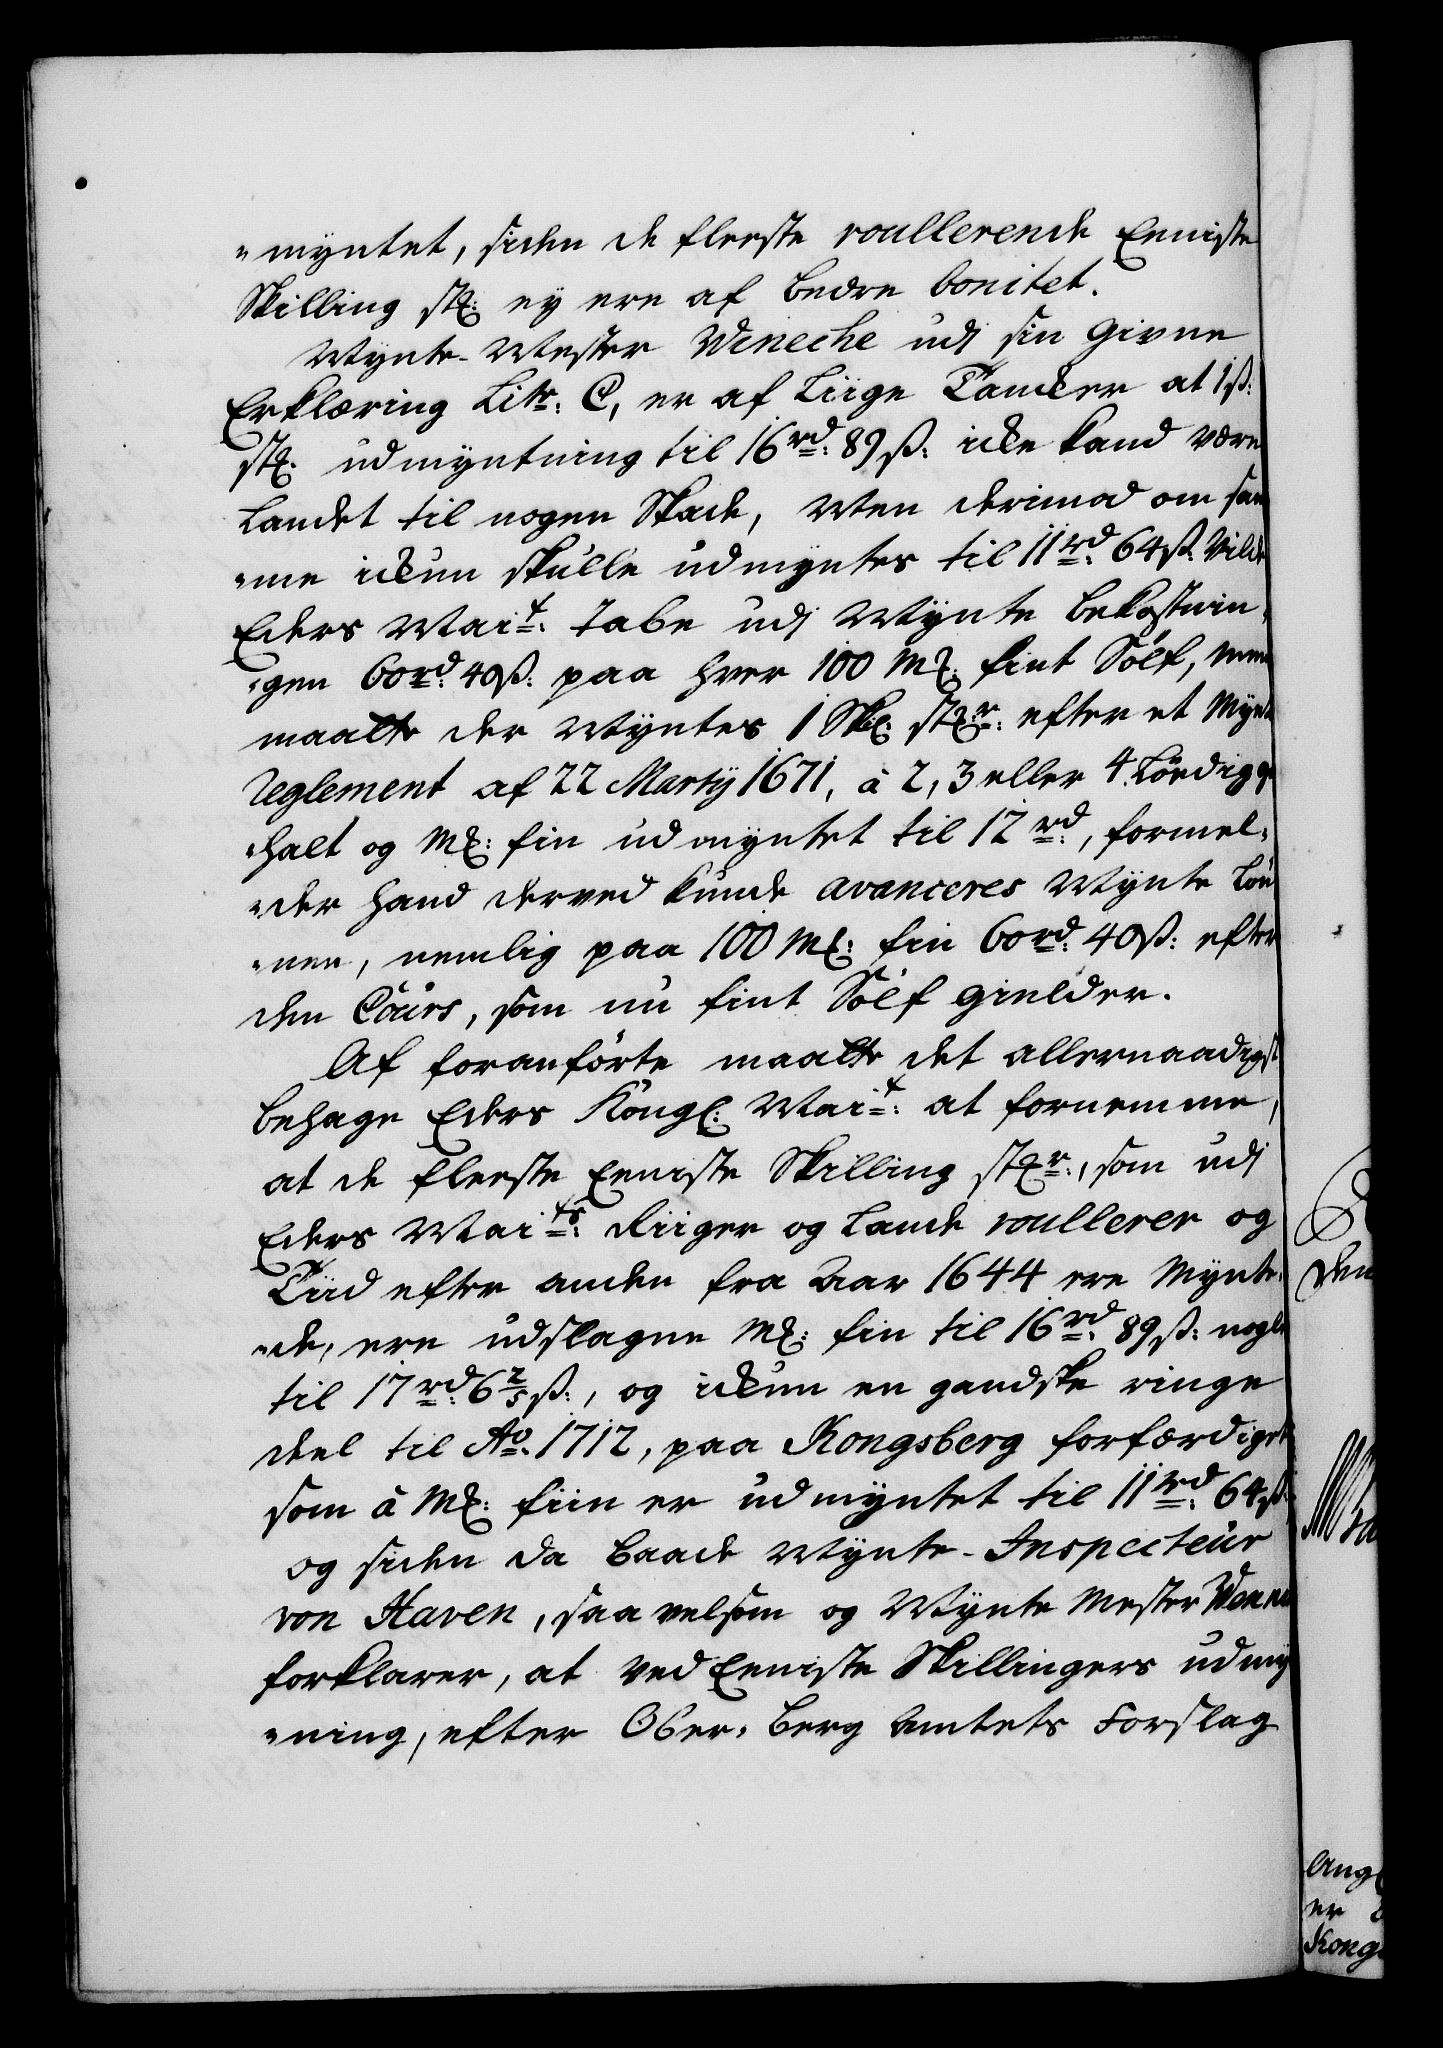 "myntet, siden de fleeste roullerende Eeniste
Skilling stk: ey ere af bedre bonitet.
Mynte-Mester Weneche udi sin givne
Erklæring Litr: C, er af liige Tancker at 1 ß:
stk: udmyntning til 16 rd: 89 ß: icke kand være
Landet til nogen Skade, Men derimod om sam
"me ickun skulle udmyntes til 11 rd: 64 ß: vilde
Eders Mait: tabe udi Mynte bekostnin
"gen 60 rd: 40 ß: paa hver 100 Mk: fint Sölf, men
maatte der Myntes 1 Sk: stkr: efter et Mynt
reglement af 22 Martij 1671, à 2, 3 eller 4 Lödig ge
"halt og Mk: fin udmyntet til 12 rd:, formee,
"der hand derved kunde avanceres Mynte Lön
"nen, nemlig paa 100 Mk: fin 60 rd: 40 ß: efter
den Cours, som nu fint Sölf gielder.
Af foranförte maatte det allernaadigst
behage Eders Kongl: Mait: at fornemme,
at de fleeste Eeniste Skilling stkr:, som udi
Eders Maits: Riiger og Lande roullerer og
Tiid efter anden fra Aar 1644 ere Mynte,
"de, ere udslagne Mk: fin til 16 rd: 89 ß: nogle
til 17 rd: 6 2/5 ß:, og ickun en gandske ringe
deel til Ao. 1712, paa Kongsberg forfærdiget
som à Mk: fiin er udmyntet til 11 rd: 64 ß:
og siden da baade Mynte-Inspecteur
von Haven, saavelsom og Mynte Mester Wene
forklarer, at ved Eeniste Skillingers udmy
"ning, efter Ober-Berg Amtets Forslag